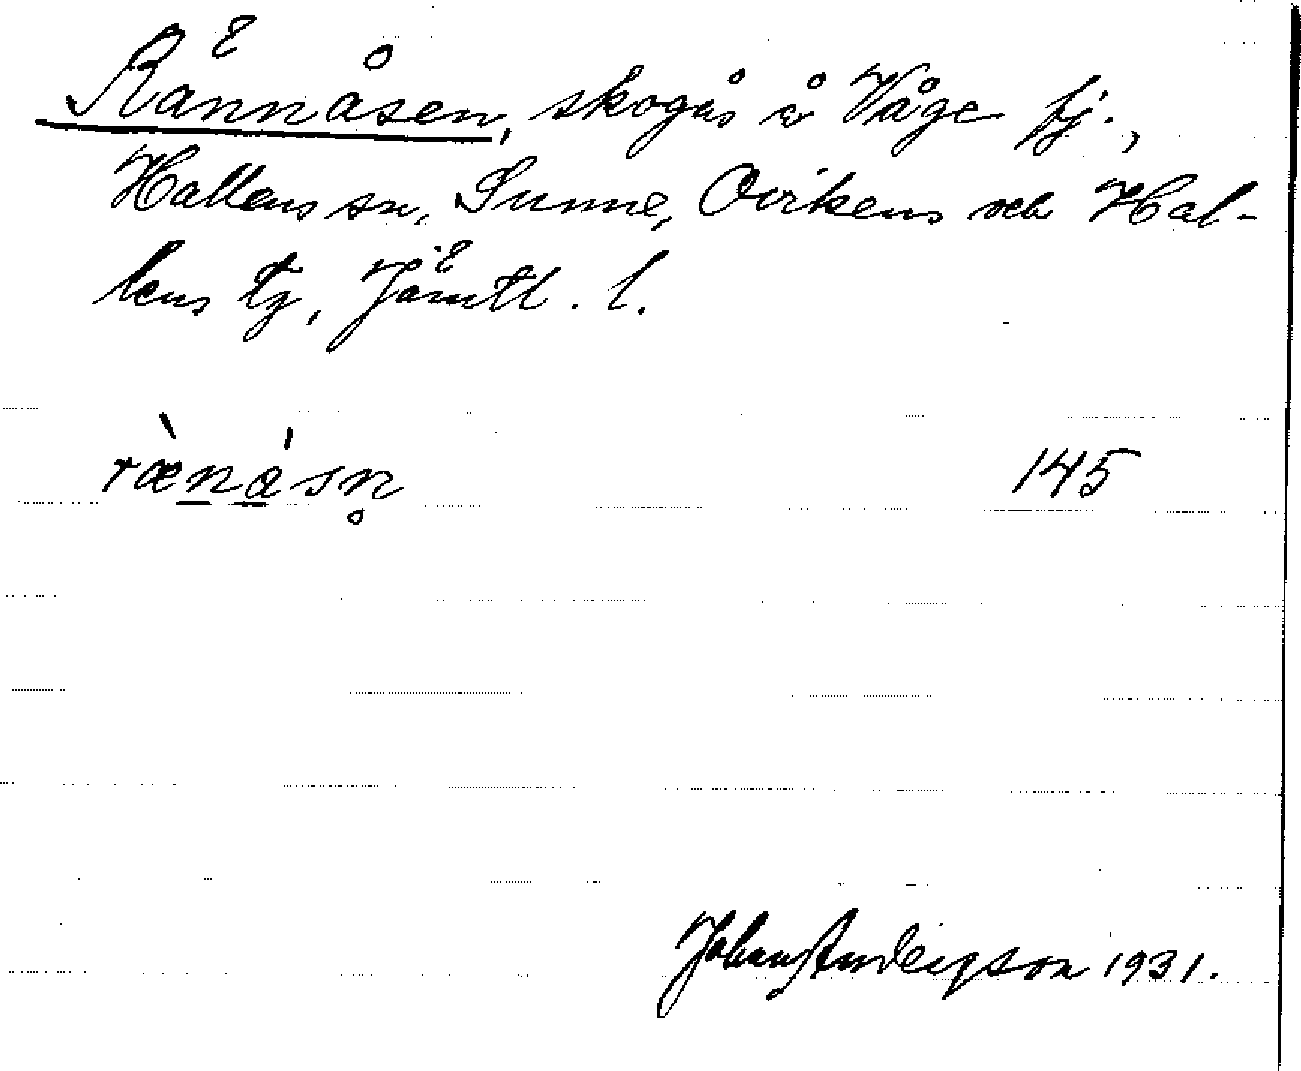 Rännåsen, skogås å Våge fj.,
Hallens sn, Sunne, Ovikens och Hal-
lens tg, Jämtl. l.
rænåsn̥ 145
Johans Anderson 1931.